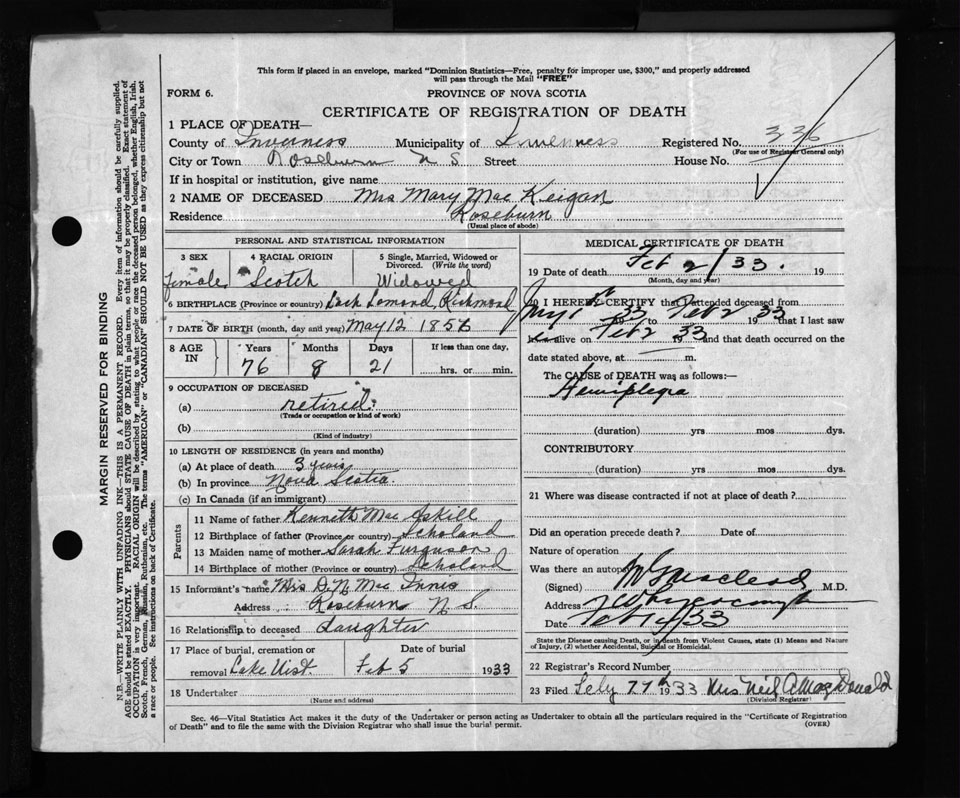 This form if placed in an envelope, marked "Dominion Statistics—Free, penalty for improper use, $300," and properly addressed
will pass through the Mail "FREE"
FORM 6.
PROVINCE OF NOVA SCOTIA
CERTIFICATE OF REGISTRATION OF DEATH
1 PLACE OF DEATH—
County of Inverness Municipality of Inverness Registered No. 336
(For use of Registrar General only)
City or Town Roseburn N S Street House No.
If in hospital or institution, give name
2 NAME OF DECEASED Mrs Mary Mac Keigan
Residence Roseburn
(Usual place of abode)
PERSONAL AND STATISTICAL INFORMATION
3 SEX 4 RACIAL ORIGIN 5 Single, Married, Widowed or
Divorced. (Write the word)
female Scotch Widowed
6 BIRTHPLACE (Province or country) Loch Lomond, Richmond
7 DATE OF BIRTH (month, day and year) May 12 1856
8 AGE IN Years Months Days If less than one day,
76 8 21 hrs. or min.
9 OCCUPATION OF DECEASED
(a) retired
(Trade or occupation or kind of work)
(b)
(Kind of industry)
10 LENGTH OF RESIDENCE (in years and months)
(a) At place of death 3 years
(b) In province Nova Scotia
(c) In Canada (if an immigrant)
Parents
11 Name of father Kenneth Mac Askill
12 Birthplace of father (Province or country) Scholand
13 Maiden name of mother Sarah Furguson
14 Birthplace of mother (Province or country) Scholand
15 Informant's name Mrs D. N. Mac Innis
Address Roseburn N S.
16 Relationship to deceased daughter
17 Place of burial, cremation or Date of burial
removal Lake Uist. Feb 5 1933
18 Undertaker
(Name and address)
MEDICAL CERTIFICATE OF DEATH
19 Date of death Feb 2/33. 19
(Month, day and year)
20 I HEREBY CERTIFY that I attended deceased from
33 to Feb 2 1933 that I last saw
alive on Feb 2 1933 and that death occurred on the
date stated above, at m.
The CAUSE of DEATH was as follows:—
Hemiplegia
(duration) yrs mos dys.
CONTRIBUTORY
(duration) yrs mos dys.
21 Where was disease contracted if not at place of death?
Did an operation precede death? Date of
Nature of operation
Was there an autopsy
(Signed) Macleod M.D.
Address Whycocomagh
Date Feb 33
State the Disease causing Death, or in death from Violent Causes, state (1) Means and Nature
of Injury, (2) whether Accidental, Suicidal or Homicidal.
22 Registrar's Record Number
23 Filed 7th 1933 Mrs. Neil A. MacDonald
(Division Registrar)
Sec. 46—Vital Statistics Act makes it the duty of the Undertaker or person acting as Undertaker to obtain all the particulars required in the "Certificate of Registration
of Death" and to file the same with the Division Registrar who shall issue the burial permit.
(OVER)
MARGIN RESERVED FOR BINDING
N.B.—WRITE PLAINLY WITH UNFADING INK—THIS IS A PERMANENT RECORD. Every item of information should be carefully supplied.
AGE should be stated EXACTLY. PHYSICIANS should STATE CAUSE OF DEATH in plain terms, so that it may be properly classified. Exact statement of
OCCUPATION is very important. RACIAL ORIGIN will be described by stating to what people or race the deceased person belonged, whether English, Irish,
Scotch, French, German, Russian, Ruthenian, etc. The terms "AMERICAN" or "CANADIAN" SHOULD NOT BE USED as they express citizenship but not
a race or people. See instructions on back of Certificate.